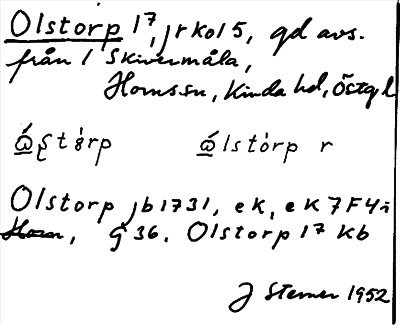 Olstorp 1⁷, jrkol 5, gd avs.
från 1 Skivermåla,
Horns sn, Kinda hd, Östgl
Olstorp jb1731, ek, eK7F4i
Horn, G36. Olstorp 1⁷ Kb
J Sterner 1952